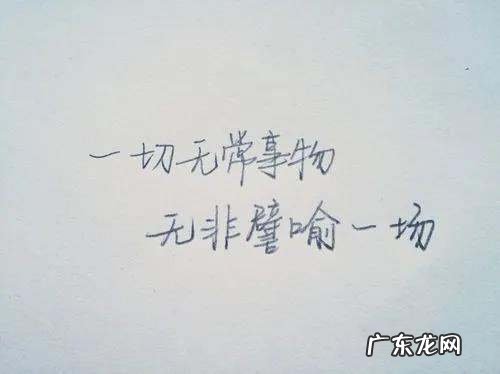 一切无常事物
无非譬喻一场
广东龙网